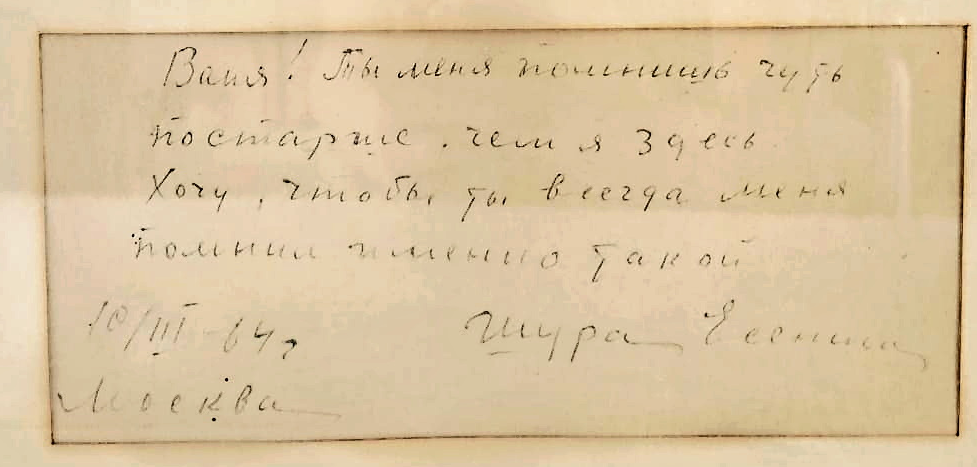 Ваня! Ты меня помнишь чуть
постарше, чем я здесь.
Хочу, чтобы ты всегда меня
помнил именно такой
10/III-64г. Шура Есенина
Москва